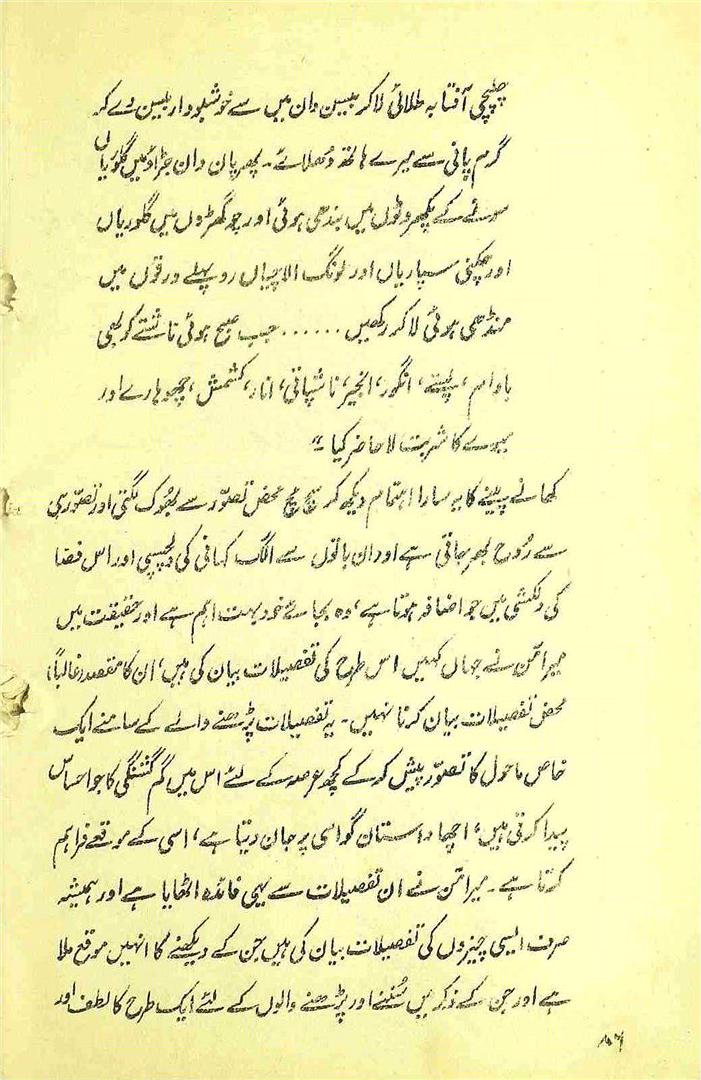 چلمچی آفتابہ طلائی لاکر بیسن دان میں سے خوشبودار بیسن دے کر
گرم پانی سے میرے ہاتھ دھلائے۔ پھر پان دان جڑاؤ میں گلوریاں
سونے کے پکھروٹوں میں بندھی ہوئی اور چوگھڑوں میں گلوریاں
اور چکنی سپاریاں اور لونگ الاچیاں روپہلے ورقوں میں
منڈھی ہوئی لاکر رکھیں ...... جب صبح ہوئی ناشتے کو بھی
بادام، پستے، انگور، انجیر، ناشپاتی، انار، کشمش، چھوہارے اور
میوے کا شربت لا حاضر کیا۔"
کھانے پینے کا یہ سارا اہتمام دیکھ کر سچ مچ محض تصوّر سے بھوک لگتی اور تصوّر ہی
سے رُوح بھر جاتی ہے اور ان باتوں سے الگ کہانی کی دلچسپی اور اس فضا
کی دلکشی میں جو اضافہ ہوتا ہے، وہ بجائے خود بہت اہم ہے اور حقیقت میں
میرامّن نے جہاں کہیں اس طرح کی تفصیلات بیان کی ہیں، ان کا مقصد (غالباً)
محض تفصیلات بیان کرنا نہیں۔ یہ تفصیلات پڑھنے والے کے سامنے ایک
خاص ماحول کا تصوّر پیش کر کے کچھ عرصہ کے لئے اس میں گم گشتگی کا جو احساس
پیدا کرتی ہیں، اچھا داستان گو اسی پر جان دیتا ہے، اسی کے موقعے فراہم
کرتا ہے۔ میرامّن نے ان تفصیلات سے یہی فائدہ اٹھایا ہے اور ہمیشہ
صرف ایسی چیزوں کی تفصیلات بیان کی ہیں جن کے دیکھنے کا انہیں موقع ملا
ہے اور جن کے ذکر میں سُننے اور پڑھنے والوں کے لئے ایک طرح کا لطف اور